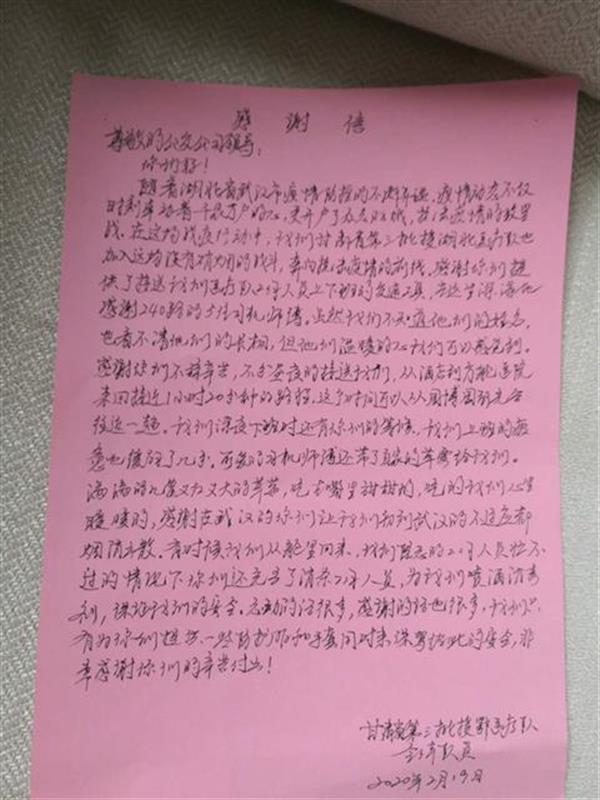 感谢信
尊敬的公交公司领导：
你们好！
随着湖北省武汉市疫情防控的不断升级，疫情动态不仅
时刻牵动着千家万户的心，更开户了
线。在这场战疫行动中，我们甘肃省第三批援湖北医疗队也
加入这场没有硝烟的战斗，奔向抗击疫情的前线。感谢你们提
供了接送我们医疗队工作人员上下班的交通工具，在这里深深地
感谢240路的士司机师傅。虽然我们不知道他们的姓名，
也看不清他们的长相，但他们温暖的心我们可以感觉到。
感谢你们不辞辛苦，不分昼夜的接送我们，从酒店到方舱医院
来回接近1小时20分钟的路程，这个时间可以从
往返一趟。我们深夜下班时还有你们的等待，我们上班的疲
惫也缓解了几分。可敬的司机师傅还带了自家的苹果给我们。
满满的几盒又大的苹果，吃在嘴里甜甜的，吃的我们心里
暖暖的，感谢在武汉的你们让我们初到武汉的不适应都
烟消云散。有时候我们从舱里回来，我们的工作人员忙不
过的情况下你们还充当了消杀工作人员，为我们喷洒消毒
剂，保证我们的安全。感动的话很多，感谢的话也很多，我们只
有为你们提供一些防护服和手套同时来保护彼此的安全，非
常感谢你们的辛苦付出！
甘肃省第三批援鄂医疗队
全体队员
2020年2月19日